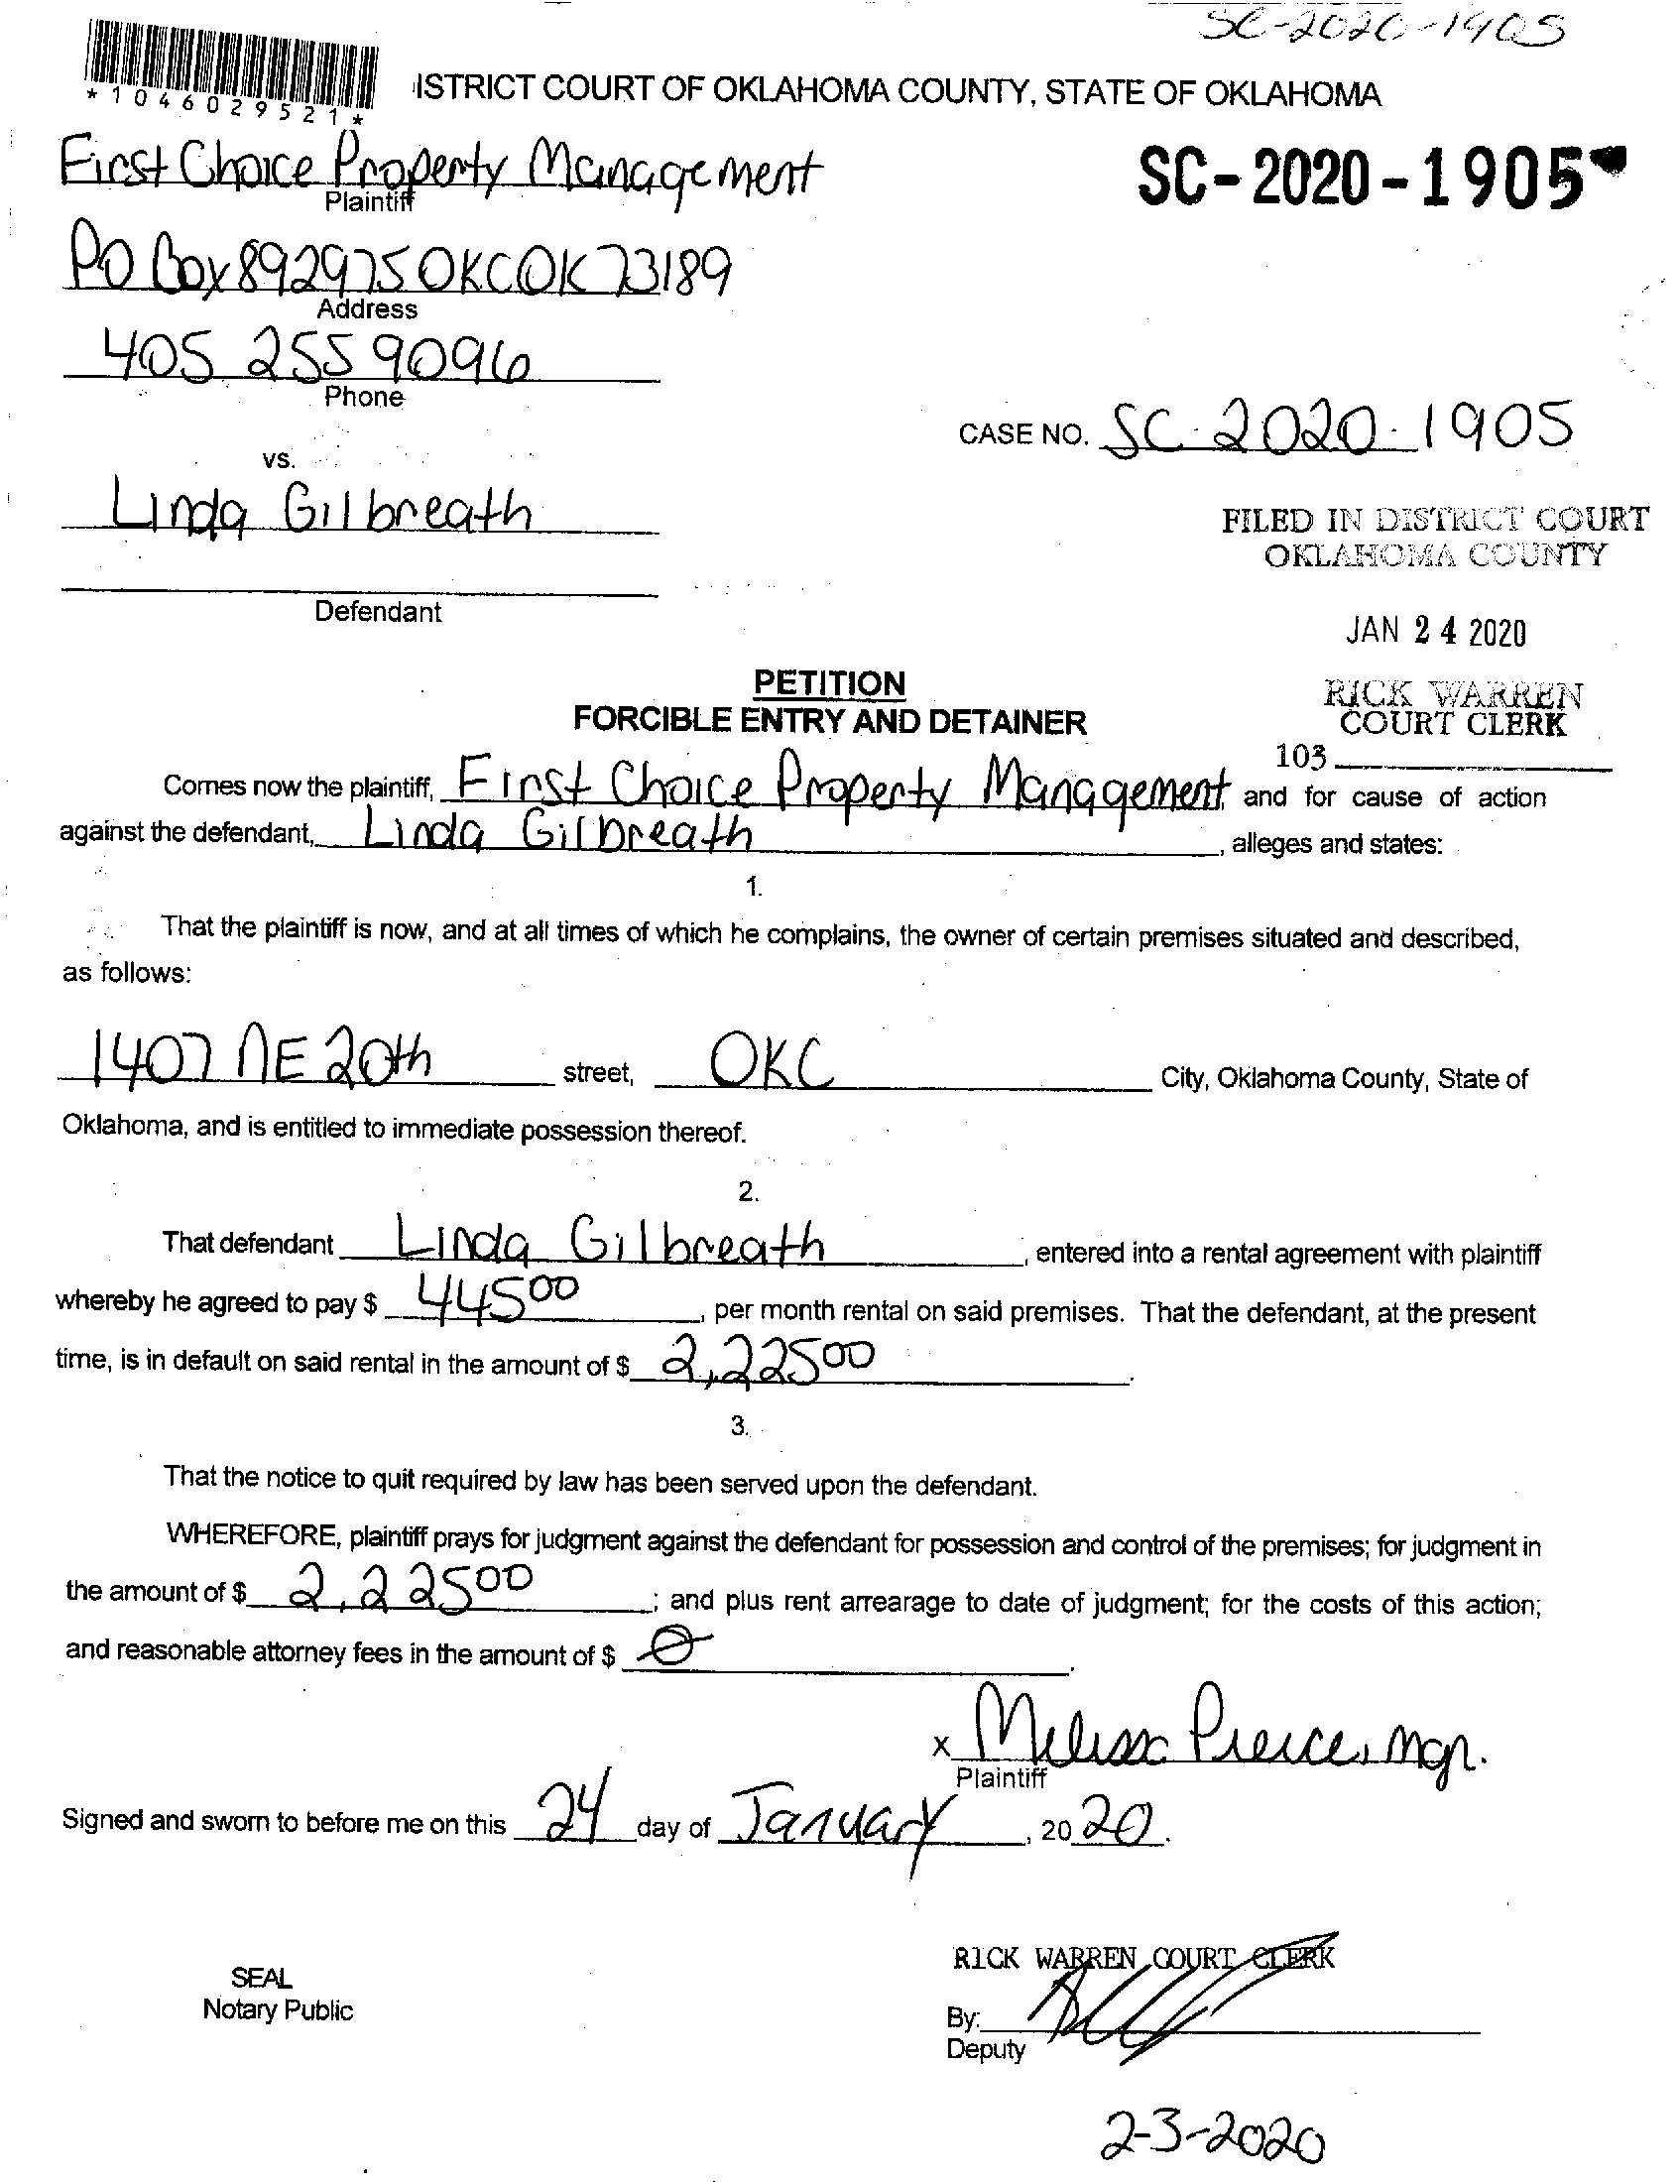 SC-2020-1905
*1046029521*
ISTRICT COURT OF OKLAHOMA COUNTY, STATE OF OKLAHOMA
First Choice Property Management
Plaintiff
SC-2020-1905
PO Box 892975 OKC OK 73189
Address
405 255 9096
Phone
CASE NO. SC-2020-1905
vs.
Linda Gilbreath
FILED IN DISTRICT COURT
OKLAHOMA COUNTY
Defendant
JAN 24 2020
PETITION
RICK WARREN
FORCIBLE ENTRY AND DETAINER
COURT CLERK
103
Comes now the plaintiff, First Choice Property Management and for cause of action
against the defendant, Linda Gilbreath, alleges and states:
1.
That the plaintiff is now, and at all times of which he complains, the owner of certain premises situated and described,
as follows:
1407 NE 20th street, OKC City, Oklahoma County, State of
Oklahoma, and is entitled to immediate possession thereof.
2.
That defendant Linda Gilbreath, entered into a rental agreement with plaintiff
whereby he agreed to pay $ 445 00, per month rental on said premises. That the defendant, at the present
time, is in default on said rental in the amount of $ 2,225 00.
3.
That the notice to quit required by law has been served upon the defendant.
WHEREFORE, plaintiff prays for judgment against the defendant for possession and control of the premises; for judgment in
the amount of $ 2,225 00; and plus rent arrearage to date of judgment; for the costs of this action;
and reasonable attorney fees in the amount of $ 0.
x Melissa Pierce, Mgr.
Plaintiff
Signed and sworn to before me on this 24 day of January, 2020.
RICK WARREN COURT CLERK
SEAL
Notary Public
By:
Deputy
2-3-2020